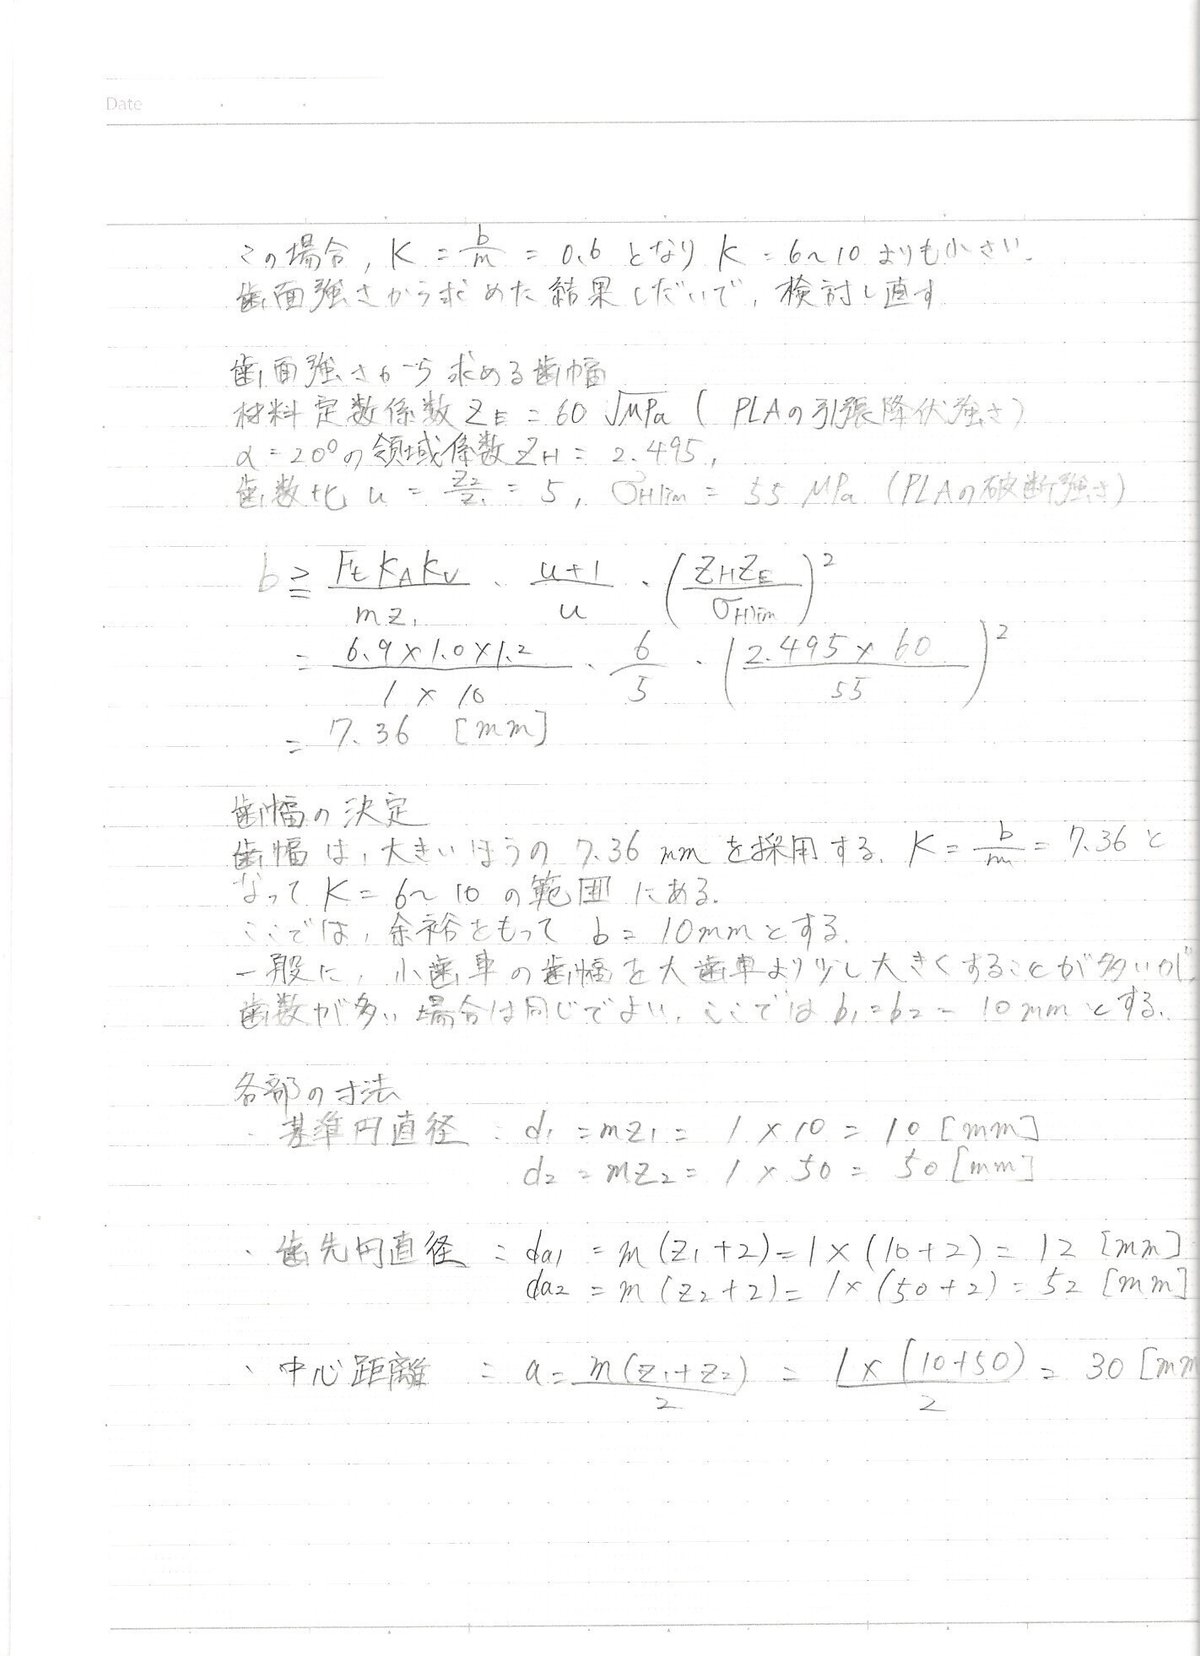 Date
この場合, K = b/m = 0.6 となり K = 6~10 よりも小さい.
歯面強さから求めた結果しだいで, 検討し直す
歯面強さから求める歯幅
材料定数係数 ZE = 60 √MPa ( PLAの引張降伏強さ)
α = 20°の領域係数 ZH = 2.495,
歯数比 u = z2/z1 = 5, σHlim = 55 MPa (PLAの破断強さ)
b ≧ FtKAKV/mz1 · u+1/u · (ZHZE/σHlim)²
= 6.9×1.0×1.2/1×10 · 6/5 · (2.495×60/55)²
= 7.36 [mm]
歯幅の決定
歯幅は, 大きいほうの 7.36 mm を採用する. K = b/m = 7.36 と
なって K = 6~10 の範囲にある.
ここでは, 余裕をもって b = 10mm とする.
一般に, 小歯車の歯幅を大歯車より少し大きくすることが多いが
歯数が多い場合は同じでよい. ここでは b1 = b2 = 10mm とする.
各部の寸法
· 基準円直径 : d1 = mz1 = 1 × 10 = 10 [mm]
d2 = mz2 = 1 × 50 = 50 [mm]
· 歯先円直径 : da1 = m(z1+2) = 1×(10+2) = 12 [mm]
da2 = m(z2+2) = 1×(50+2) = 52 [mm]
· 中心距離 : a = m(z1+z2)/2 = 1×(10+50)/2 = 30 [mm